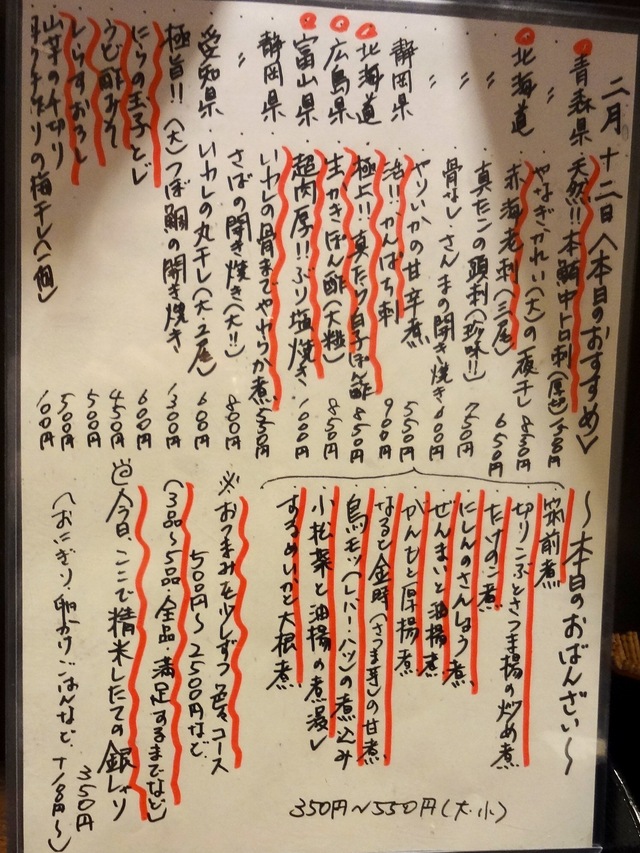 二月十二日〈本日のおすすめ〉
青森県 天然!!本鮪中トロ刺(厚切)
〃 やなぎかれい(大)の一夜干 850円
北海道 赤海老刺(三尾) 650円
〃 真だこの頭刺(珍味!!) 750円
〃 骨なしさんまの開き焼き 600円
〃 やりいかの甘辛煮 550円
静岡県 活!!かんぱち刺 900円
北海道 極上!!真だら白子ぽん酢 850円
広島県 生かきぽん酢(大粒) 850円
富山県 超肉厚!!ぶり塩焼き 1000円
静岡県 いわしの骨までやわらか煮 550円
〃 さばの開き焼き(大!!) 800円
愛知県 いわしの丸干し(大2尾) 600円
極旨!!(大)つぼ鯛の開き焼き 1300円
にらの玉子とじ 600円
うど酢みそ 450円
しらすおろし 500円
山芋の千切り 500円
梅干し(一個) 100円
〜本日のおばんざい〜
筑前煮
切りこぶとさつま揚の炒め煮
たけのこ煮
にしんのさんしょう煮
ぜんまいと油揚煮
かんぴと厚揚煮
なると金時(さつま芋)の甘煮
鳥モツ(レバー・ハツ)の煮込み
小松菜と油揚の煮浸し
するめいかと大根煮
350円〜550円(大・小)
※おつまみを少しずつ色々コース
500円〜2500円など
(3品〜5品・全品・満足するまでなど)
今日、ここで精米したての銀しゃり
350円
(おにぎり・卵かけごはんなど、+100円〜)